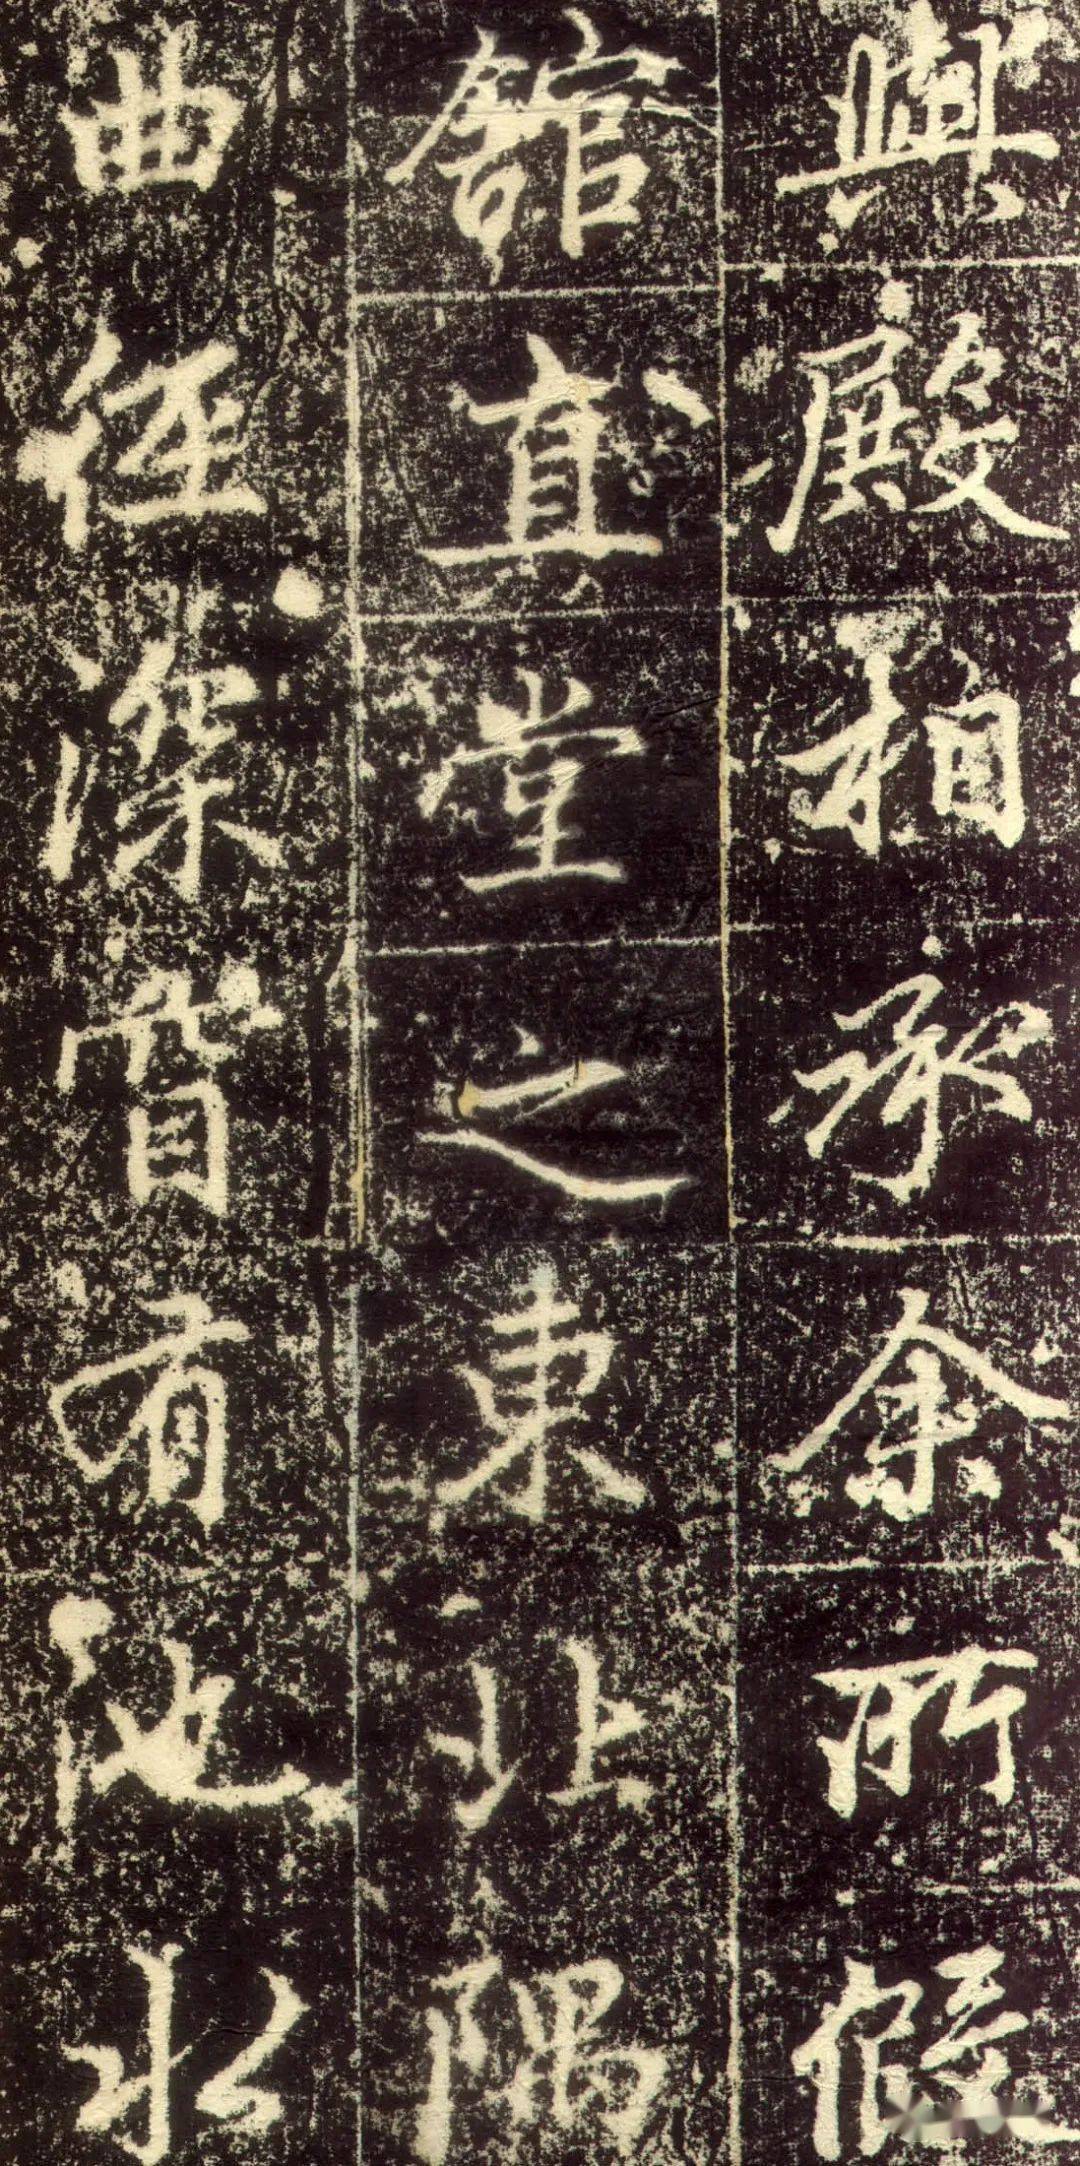 與殿相承余所假
館直堂之東北隅
曲徑深窅有池水